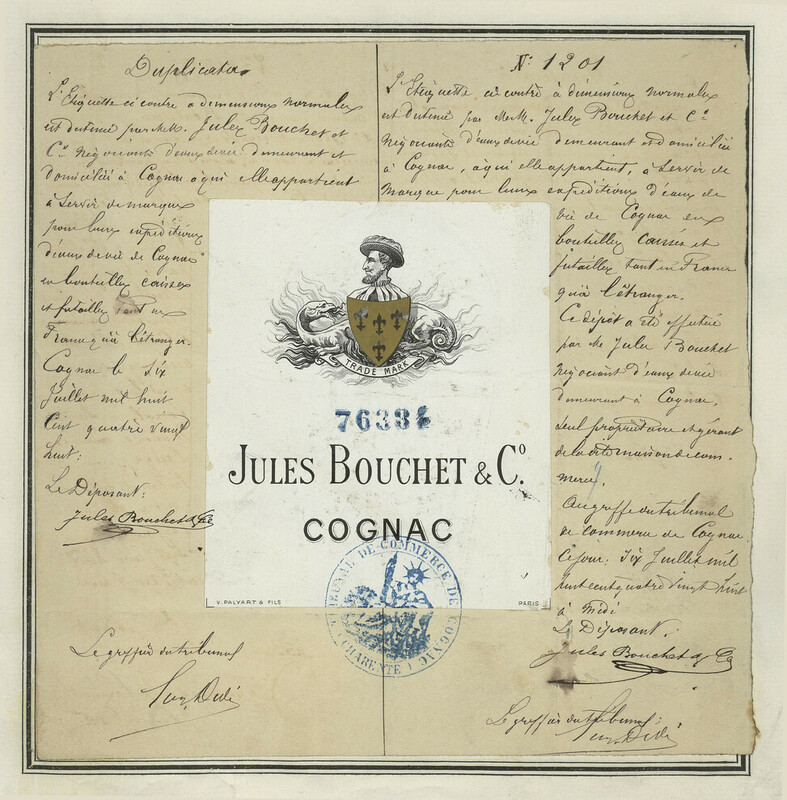 Duplicata
L'Etiquette ci contre a dimensions normales
est destinée par MM. Jules Bouchet et
Cie Négociants d'eaux de vie demeurant et
domiciliés à Cognac à qui elle appartient
à servir de marque
pour leurs expéditions
d'eaux de vie de Cognac
en bouteilles caisses
et futailles tant en
France qu'à l'étranger.
Cognac le six
Juillet mil huit
Cent quatre vingt
huit:
Le Déposant:
Jules Bouchet & Cie
Le greffier du tribunal
No 1201
L'Etiquette ci contre à dimensions normales
est destinée par MM. Jules Bouchet et Cie
Négociants d'eaux de vie demeurant et domiciliés
à Cognac, à qui elle appartient, à servir de
Marque pour leurs expéditions d'eaux de
vie de Cognac en
bouteilles caisses et
futailles tant en France
qu'à l'étranger.
Ce dépôt a été effectué
par Mr Jules Bouchet
Négociant d'eaux de vie
demeurant à Cognac,
seul propriétaire et gérant
de la dite maison de com-
merce.
Au greffe du tribunal
de commerce de Cognac
Ce jour: six Juillet mil
huit cent quatre vingt huit
à Midi
Le Déposant.
Jules Bouchet & Cie
Le greffier du tribunal:
TRADE MARK
JULES BOUCHET & Co.
COGNAC
TRIBUNAL DE COMMERCE DE COGNAC
(CHARENTE)
V. PALYART & FILS
PARIS